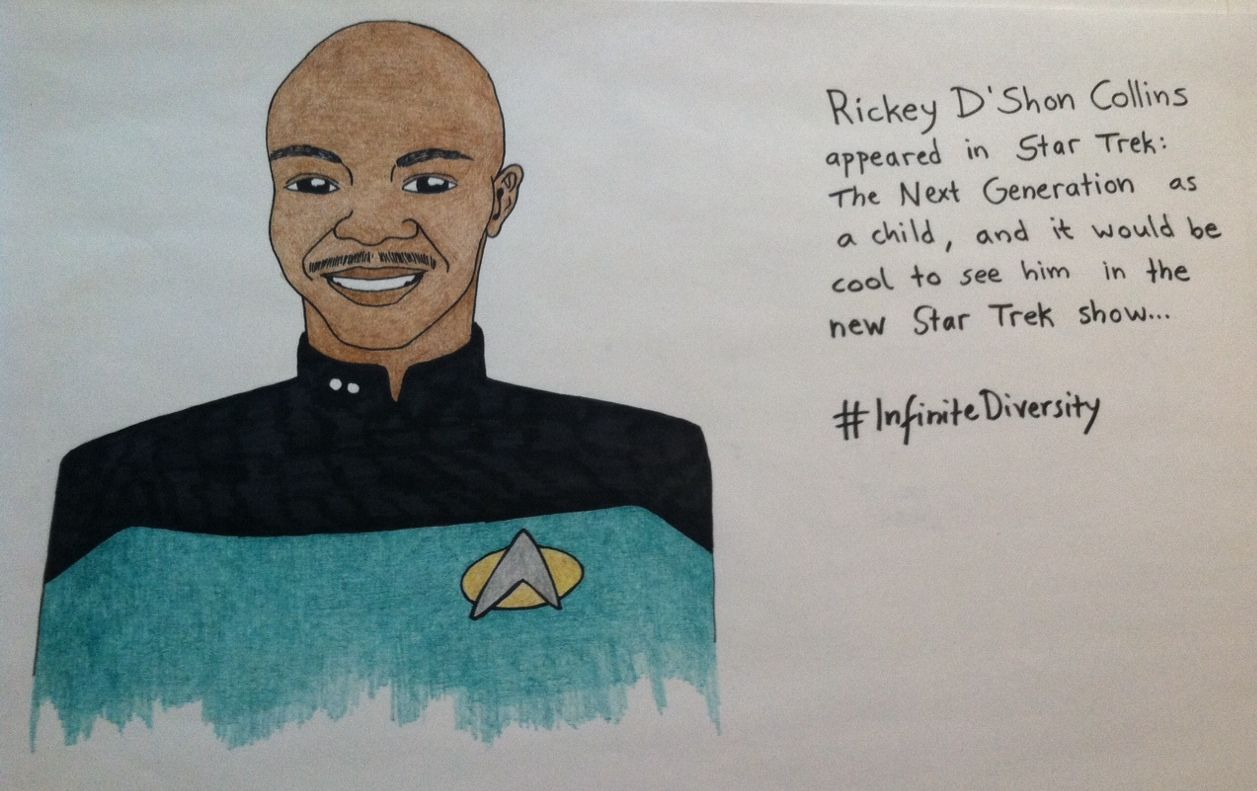 Rickey D'Shon Collins
appeared in Star Trek:
The Next Generation as
a child, and it would be
cool to see him in the
new Star Trek show...
#InfiniteDiversity